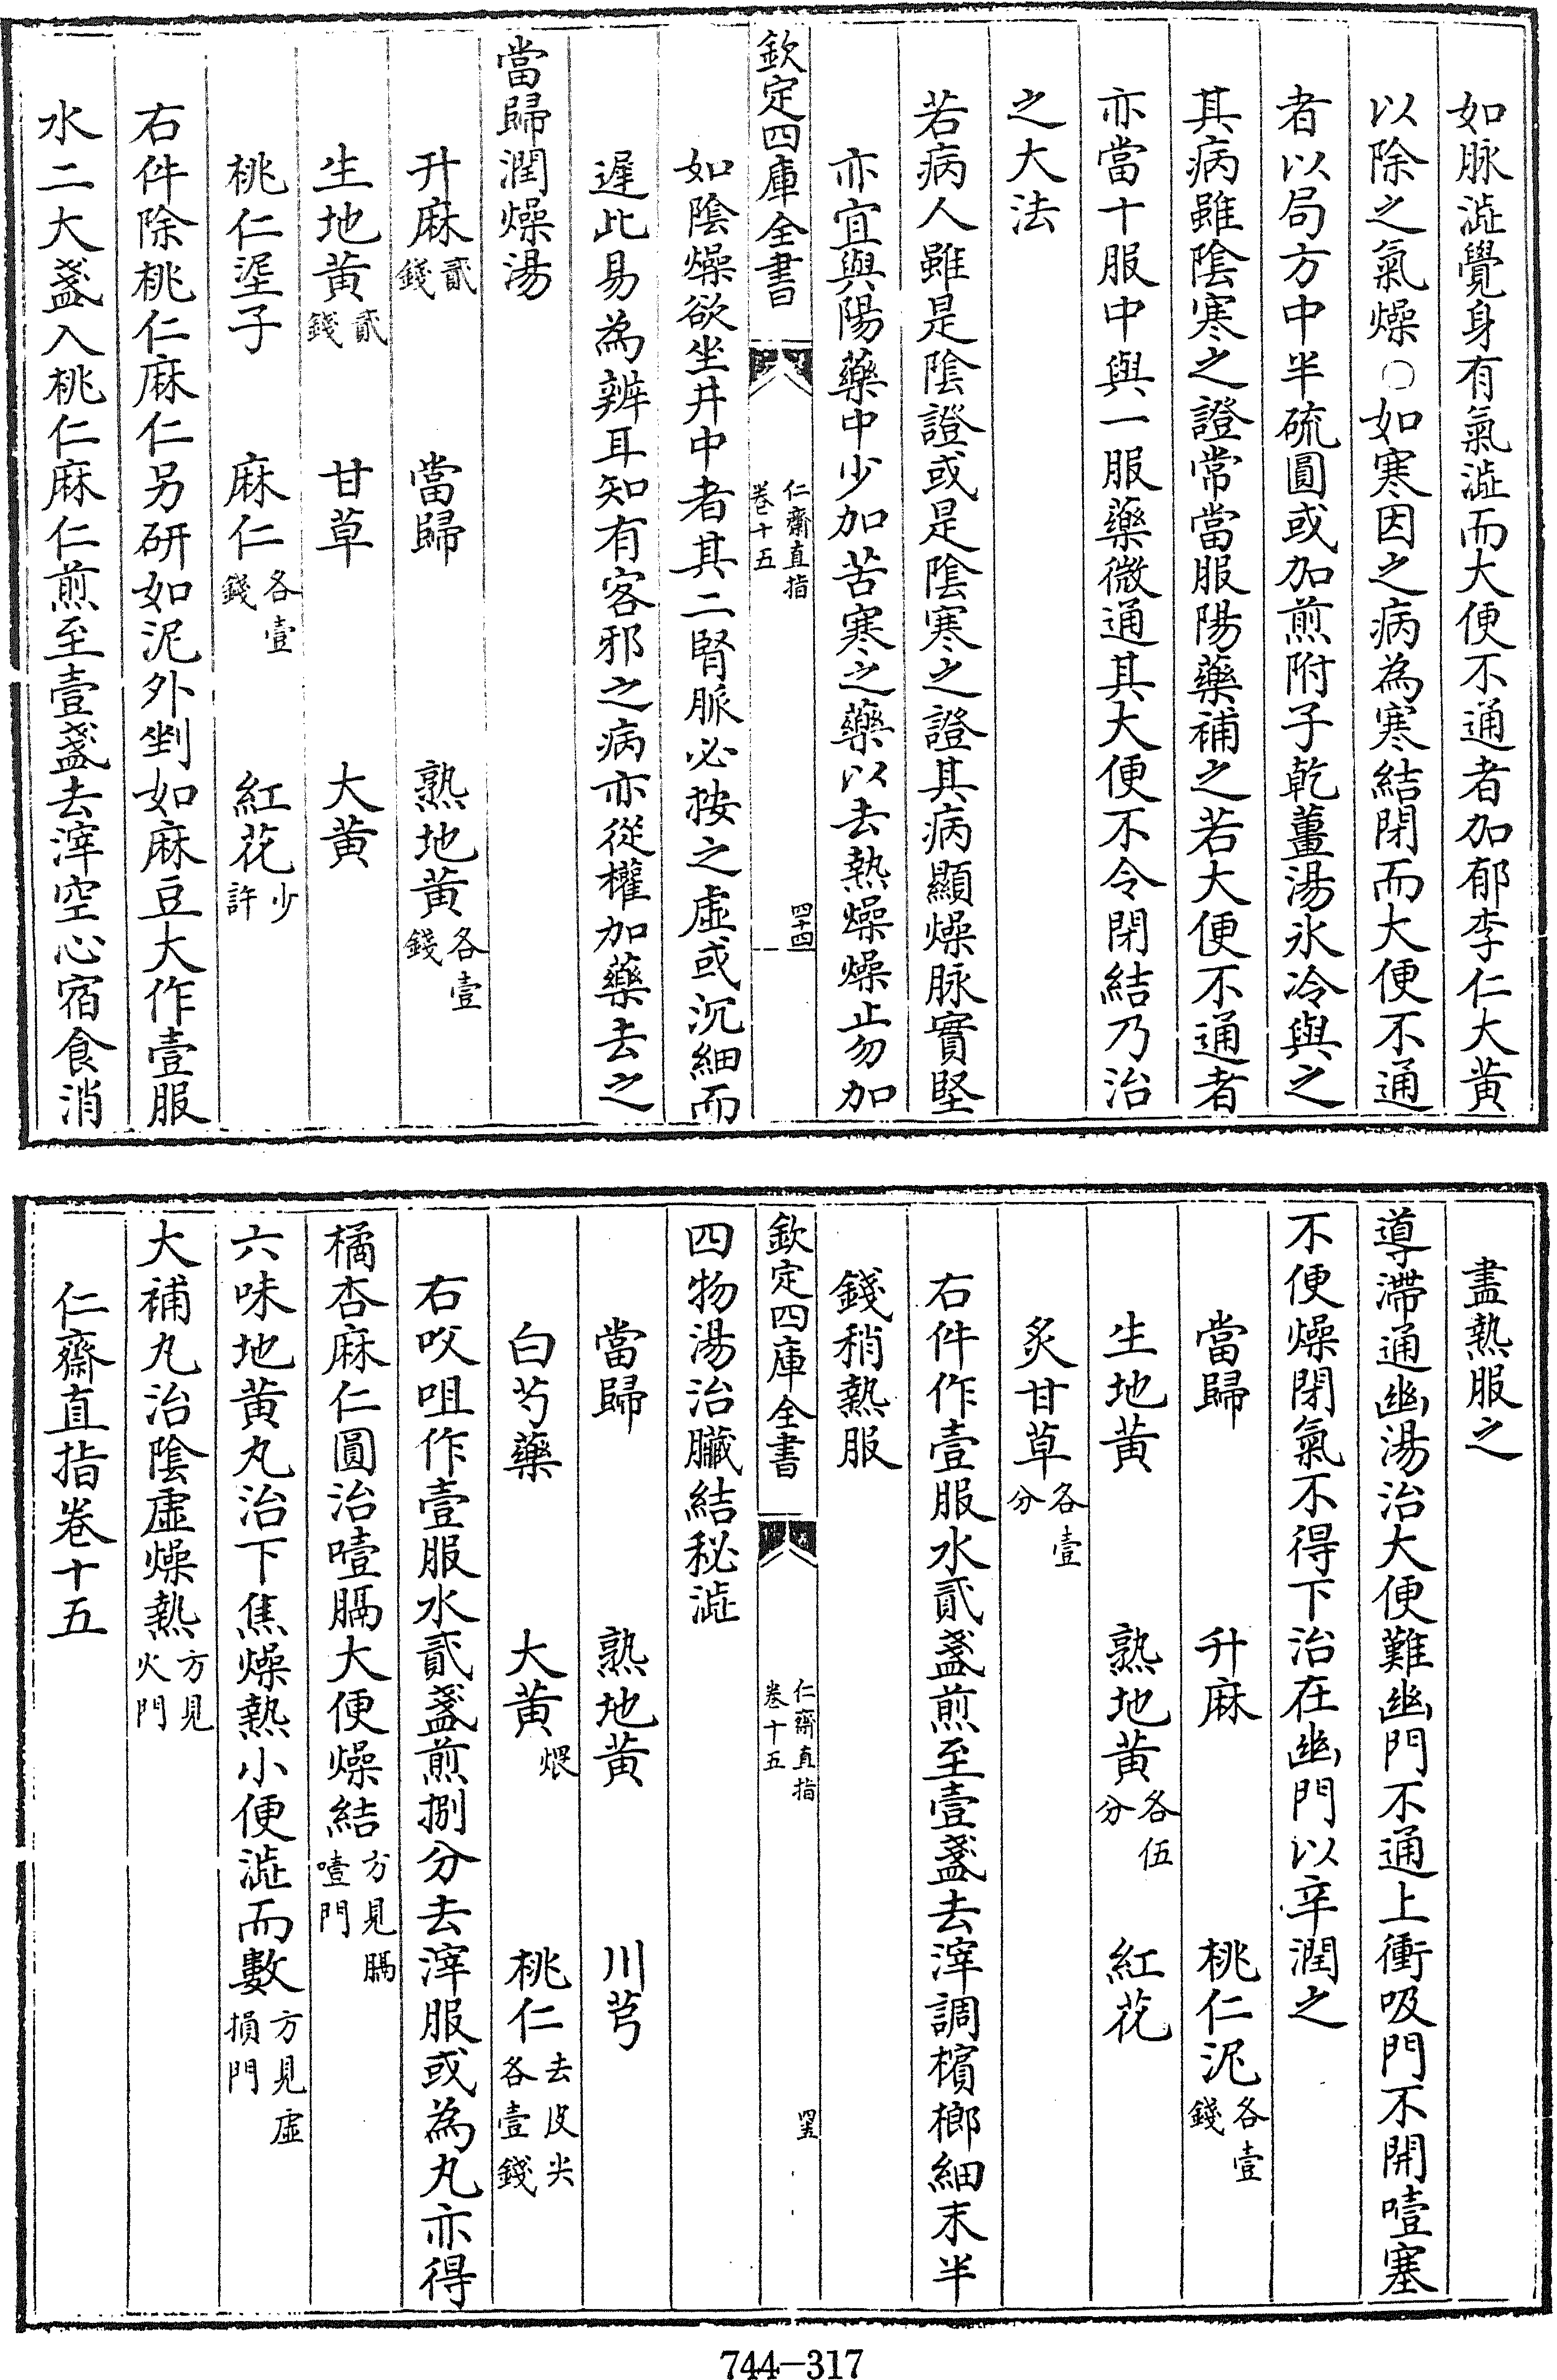 如脉澁覺身有氣澁而大便不通者加郁李仁大黄
以除之氣燥○如寒因之病為寒結閉而大便不通
者以局方中半硫圓或加煎附子乾薑湯氷冷與之
其病雖陰寒之證常當服陽藥補之若大便不通者
亦當十服中與一服藥微通其大便不令閉結乃治
之大法
若病人雖是陰證或是陰寒之證其病顯燥脉實堅
亦宜與陽藥中少加苦寒之藥以去熱燥燥止勿加
欽定四庫全書 仁齋直指 卷十五 四十四
如陰燥欲坐井中者其二腎脈必按之虛或沉細而
遲此易為辨耳知有客邪之病亦從權加藥去之
當歸潤燥湯
升麻貳錢 當歸 熟地黄各壹錢
生地黄貳錢 甘草 大黄
桃仁埿子 麻仁各壹錢 紅花少許
右件除桃仁麻仁另研如泥外剉如麻豆大作壹服
水二大盞入桃仁麻仁煎至壹盞去滓空心宿食消
盡熱服之
導滯通幽湯治大便難幽門不通上衝吸門不開噎塞
不便燥閉氣不得下治在幽門以辛潤之
當歸 升麻 桃仁泥各壹錢
生地黄 熟地黄各伍分 紅花
炙甘草各壹分
右件作壹服水貳盞煎至壹盞去滓調檳榔細末半
錢稍熱服
欽定四庫全書 仁齋直指 卷十五 四五
四物湯治臟結秘澁
當歸 熟地黄 川芎
白芍藥 大黄煨 桃仁去皮尖各壹錢
右㕮咀作壹服水貳盞煎捌分去滓服或為丸亦得
橘杏麻仁圓治噎膈大便燥結方見膈噎門
六味地黄丸治下焦燥熱小便澁而數方見虛損門
大補丸治陰虛燥熱方見火門
仁齋直指卷十五
744-317